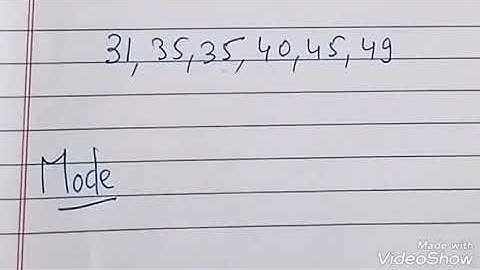 31, 35, 35, 40, 45, 49
Mode
Made with
VideoShow